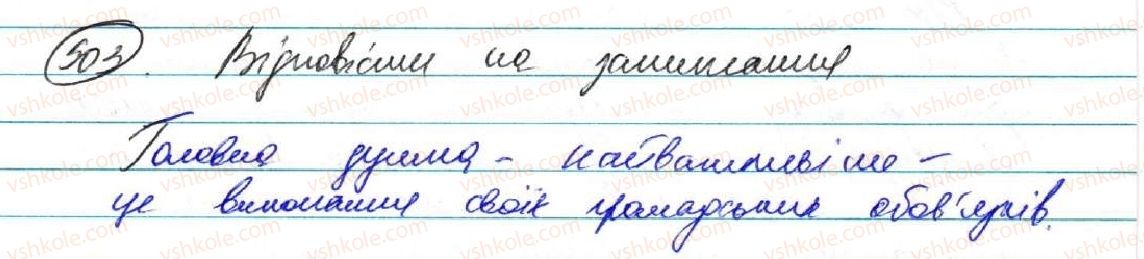 503. Відповісти на запитання
Головна думка - найважливіше -
це виконання своїх громадських обов'язків.